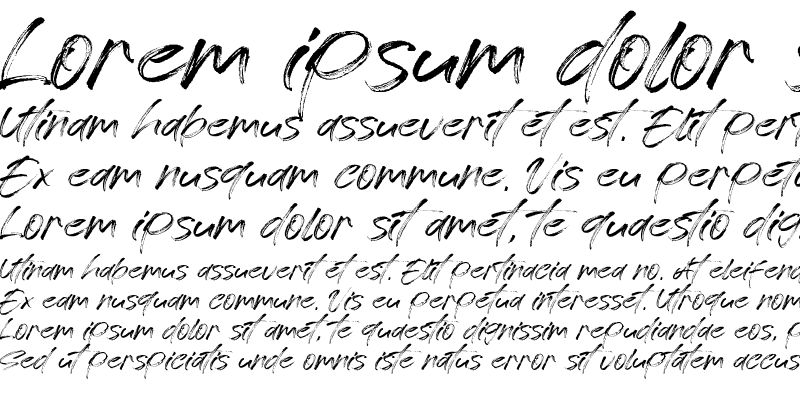 Lorem ipsum dolor
Utinam habemus assueverit et est. Elit pert
Ex eam nusquam commune. Vis eu perpetu
Lorem ipsum dolor sit amet, te quaestio dig
Utinam habemus assueverit et est. Elit pertinacia mea no. At eleifend
Ex eam nusquam commune. Vis eu perpetua interesset. Utroque nom
Lorem ipsum dolor sit amet, te quaestio dignissim repudiandae eos, p
Sed ut perspiciatis unde omnis iste natus error sit voluptatem accus